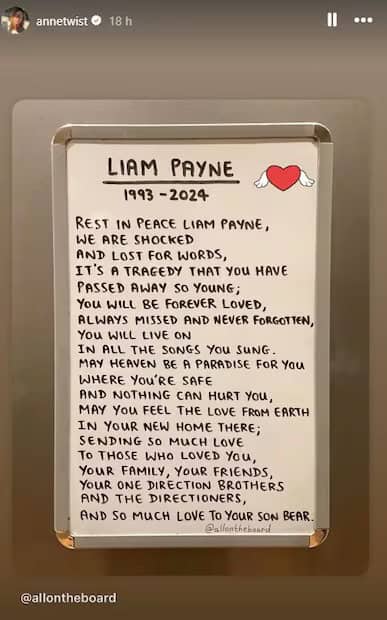 annetwist 18 h
LIAM PAYNE
1993 - 2024
REST IN PEACE LIAM PAYNE,
WE ARE SHOCKED
AND LOST FOR WORDS,
IT'S A TRAGEDY THAT YOU HAVE
PASSED AWAY SO YOUNG;
YOU WILL BE FOREVER LOVED,
ALWAYS MISSED AND NEVER FORGOTTEN,
YOU WILL LIVE ON
IN ALL THE SONGS YOU SUNG.
MAY HEAVEN BE A PARADISE FOR YOU
WHERE YOU'RE SAFE
AND NOTHING CAN HURT YOU,
MAY YOU FEEL THE LOVE FROM EARTH
IN YOUR NEW HOME THERE;
SENDING SO MUCH LOVE
TO THOSE WHO LOVED YOU,
YOUR FAMILY, YOUR FRIENDS,
YOUR ONE DIRECTION BROTHERS
AND THE DIRECTIONERS,
AND SO MUCH LOVE TO YOUR SON BEAR.
@allontheboard
@allontheboard